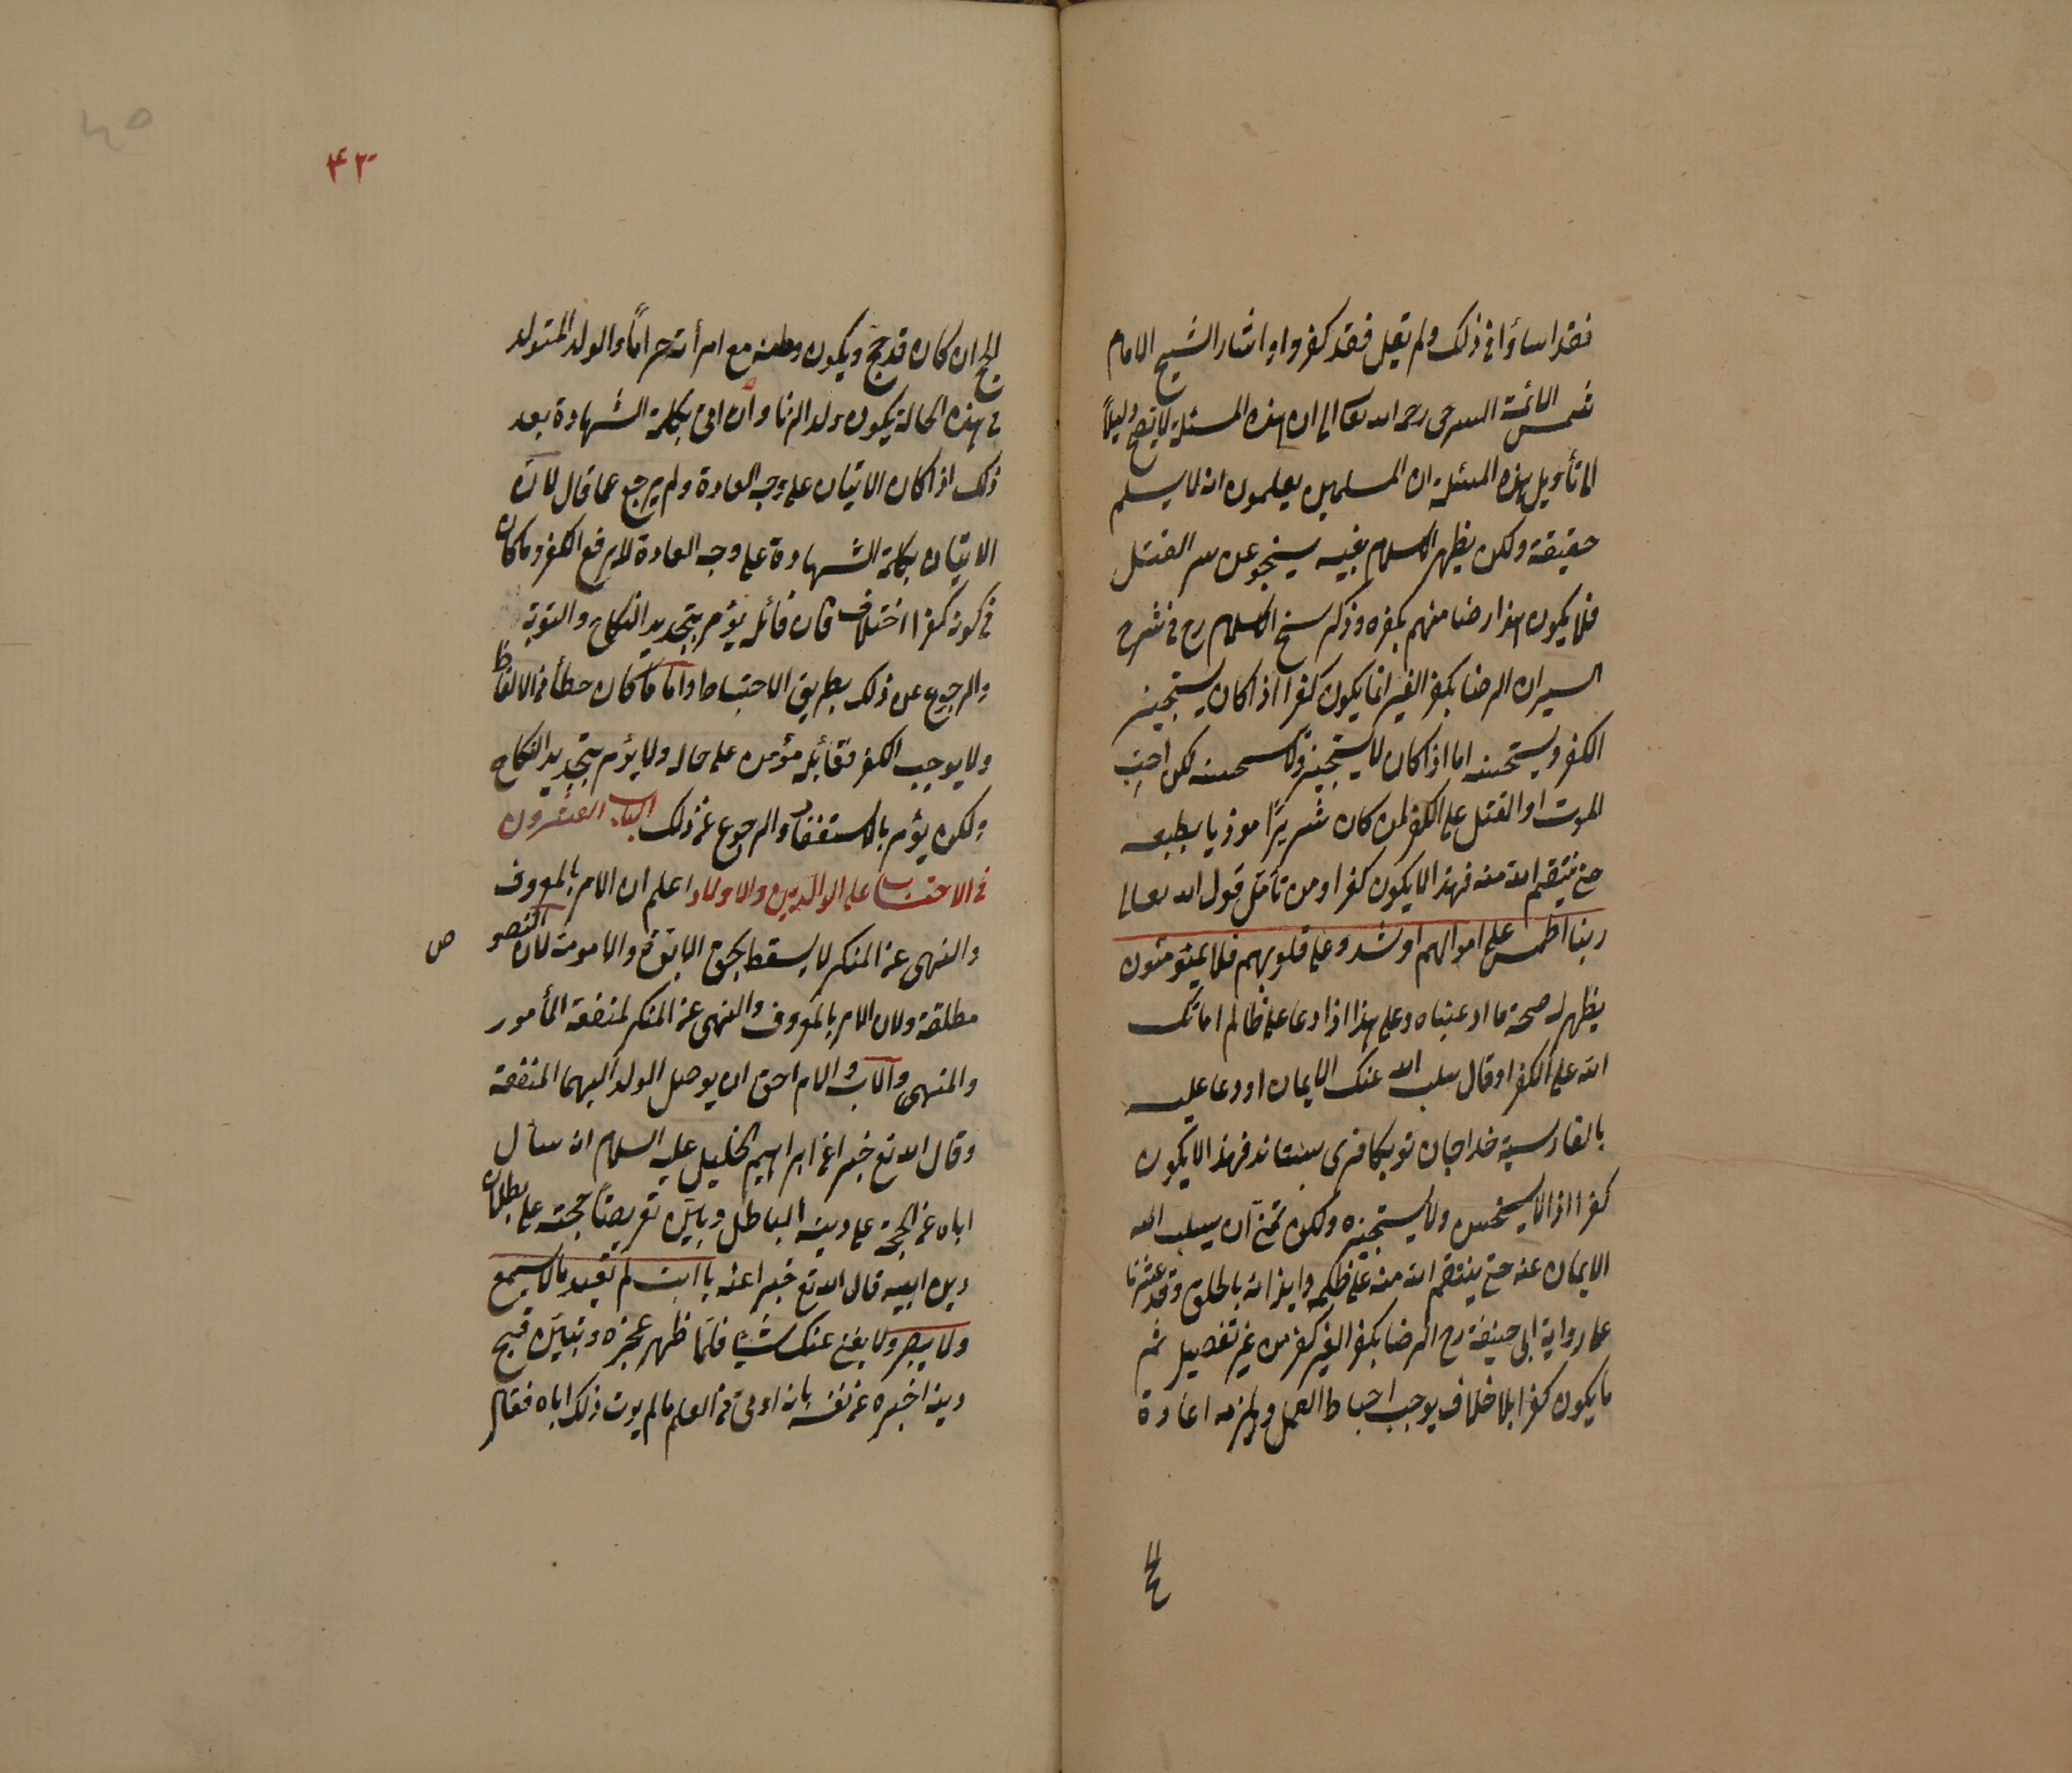 فقد اساؤا في ذلك ولم يقل فقد كفروا واشار الشيخ الامام
شمس الائمة السرخسي رحمه الله تعالى الى ان هذه المسئلة لا تصح دليلاً
لان تأويل هذه المسئلة ان المسلمين يعلمون انه لا يسلم
حقيقة ولكن يظهر الاسلام بفيه سينجو عن سر القتل
فلا يكون هذا رضا منهم بكفره وذكر شيخ الاسلام رح في شرح
السير ان الرضا بكفر الغير انما يكون كفرا اذا كان يستجيز
الكفر ويستحسنه اما اذا كان لا يستجيزه ولا يستحسنه لكن احب
الموت او القتل على الكفر لمن كان شريرًا موذيا بطبعه
حتى ينتقم الله منه فهذا لا يكون كفرا ومن تأمل قول الله تعالى
ربنا اطمس على اموالهم واشدد على قلوبهم فلا يؤمنون
يظهر له صحة ما ادعيناه وعلى هذا اذا دعا على ظالم اماتك
الله على الكفر او قال سلب الله عنك الايمان او دعا عليه
بالفارسية خدا جان تو بكافرى بستاند فهذا لا يكون
كفرا اذا لا يستحسن ولا يستجيزه ولكن تمنى ان يسلب الله
الايمان عنه حتى ينتقم الله منه على ظلمه وايذائه بالخلق وقد عثرنا
على رواية ابى حنيفة رح الرضا بكفر الغير كفر من غير تفصيل ثم
ما يكون كفرا بلا خلاف يوجب احباط العمل ويلزمه اعادة
الحج
۴۲
الحج ان كان قد حج ويكون وطئه مع امرأته حراماً والولد المتولد
في هذه الحالة يكون ولد الزنا وان اتى بكلمة الشهادة بعد
ذلك اذا كان الاتيان على وجه العادة ولم يرجع عما قال لان
الاتيان بكلمة الشهادة على وجه العادة لا يرفع الكفر وما كان
في كونه كفرا اختلاف فان قائله يؤمر بتجديد النكاح والتوبة
والرجوع عن ذلك بطريق الاحتياط واما ما كان خطأ في الالفاظ
ولا يوجب الكفر فقائله مؤمن على حاله ولا يؤمر بتجديد النكاح
ولكن يؤمر بالاستغفار والرجوع عن ذلك الباب العشرون
في الاحتساب على الوالدين والاولاد اعلم ان الامر بالمعروف
والنهى عن المنكر لا يسقط بحق الابوة والامومة لان النصوص
مطلقة ولان الامر بالمعروف والنهى عن المنكر لمنفعة المأمور
والمنهى والاب والام احق ان يوصل الولد اليهما المنفعة
وقال الله تع خبرا عن ابراهيم الخليل عليه السلام انه سأل
اباه عن الحجة على دينه الباطل وبين تعريضا حجته على بطلان
دين ابيه قال الله تع خبرا عنه يا ابت لم تعبد ما لا يسمع
ولا يبصر ولا يغنى عنك شيئا فلما ظهر عجزه وتبين قبح
دينه اخبره عن نفسه بانه اوتى من العلم ما لم يوت ذلك اباه فقال